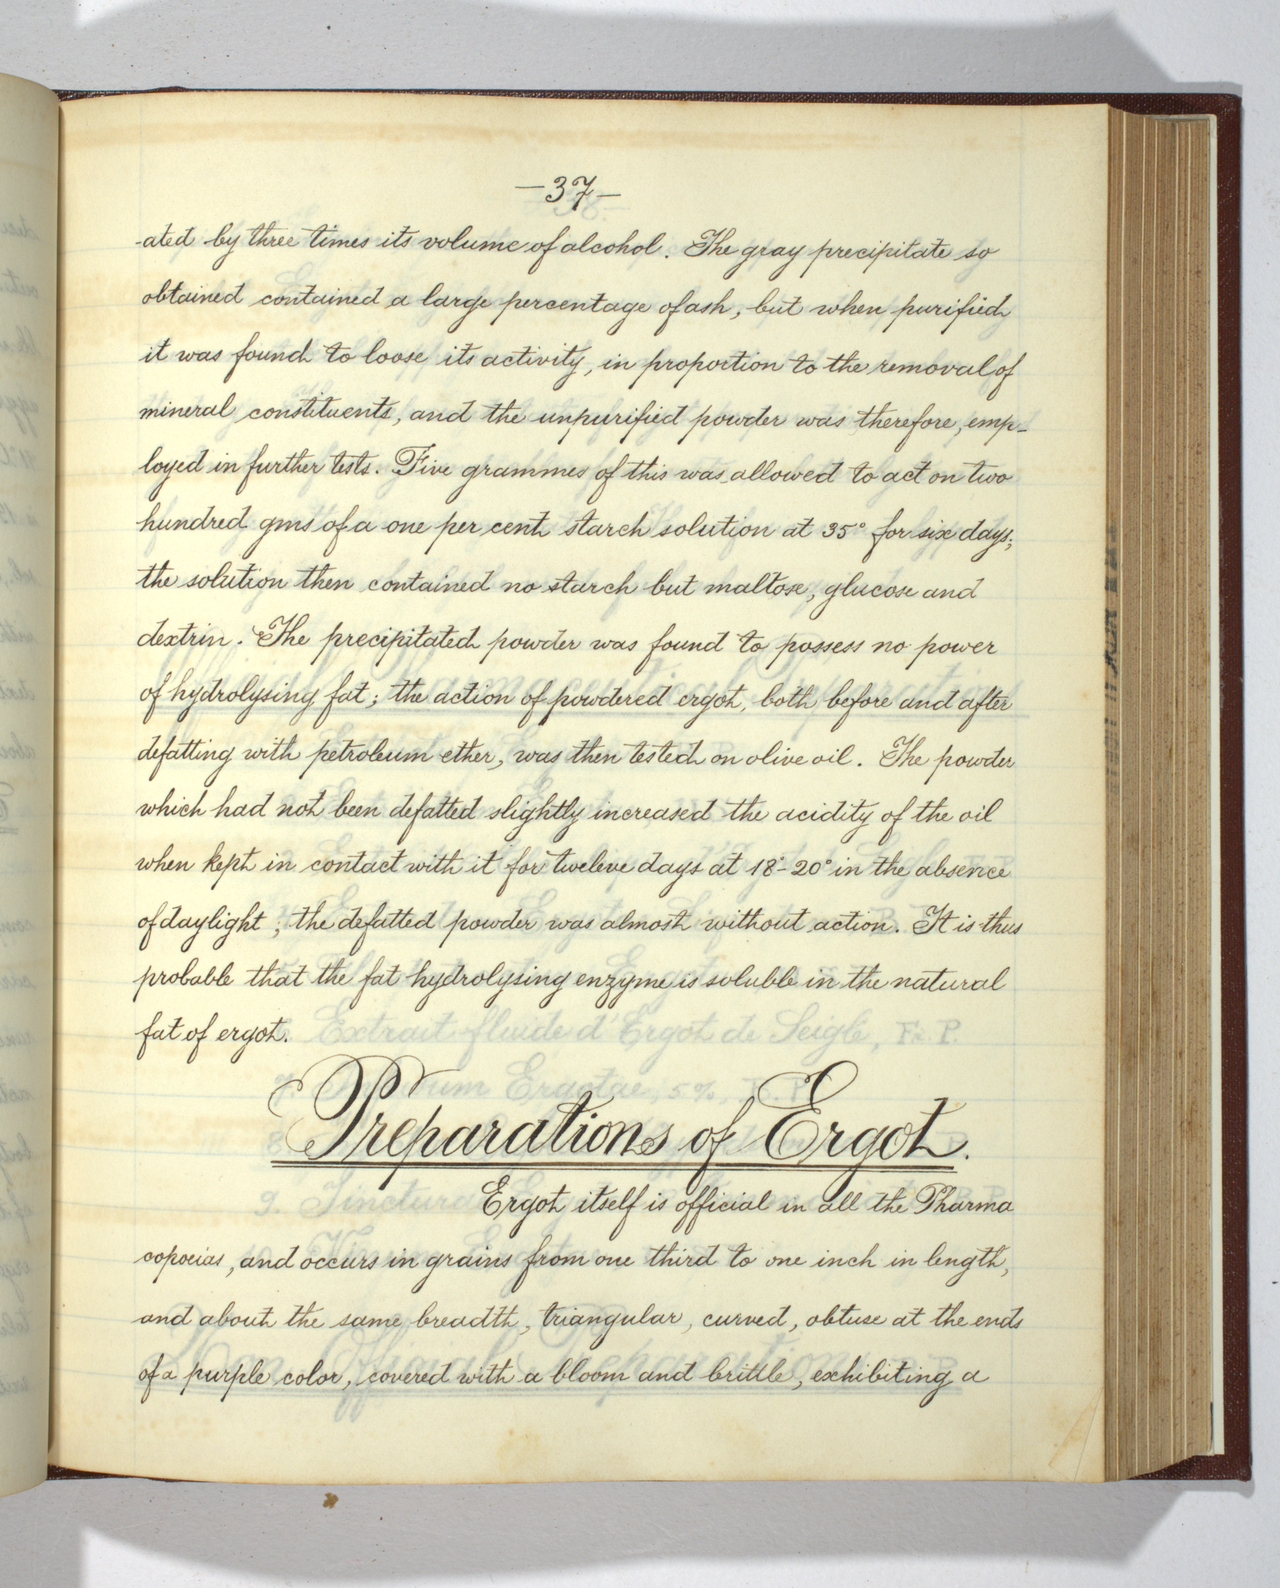 —37—
-ated by three times its volume of alcohol. The gray precipitate so
obtained contained a large percentage of ash, but when purified
it was found to loose its activity, in proportion to the removal of
mineral constituents, and the unpurified powder was therefore, emp-
loyed in further tests. Five grammes of this was allowed to act on two
hundred gms of a one per cent starch solution at 35° for six days;
the solution then contained no starch but maltose, glucose and
dextrin. The precipitated powder was found to possess no power
of hydrolysing fat; the action of powdered ergot, both before and after
defatting with petroleum ether, was then tested on olive oil. The powder
which had not been defatted slightly increased the acidity of the oil
when kept in contact with it for tweleve days at 18°-20° in the absence
of daylight; the defatted powder was almost without action. It is thus
probable that the fat hydrolysing enzyme is soluble in the natural
fat of ergot.
Preparations of Ergot.
Ergot itself is official in all the Pharma
copoeias, and occurs in grains from one third to one inch in length,
and about the same breadth, triangular, curved, obtuse at the ends
of a purple color, covered with a bloom and brittle, exhibiting a